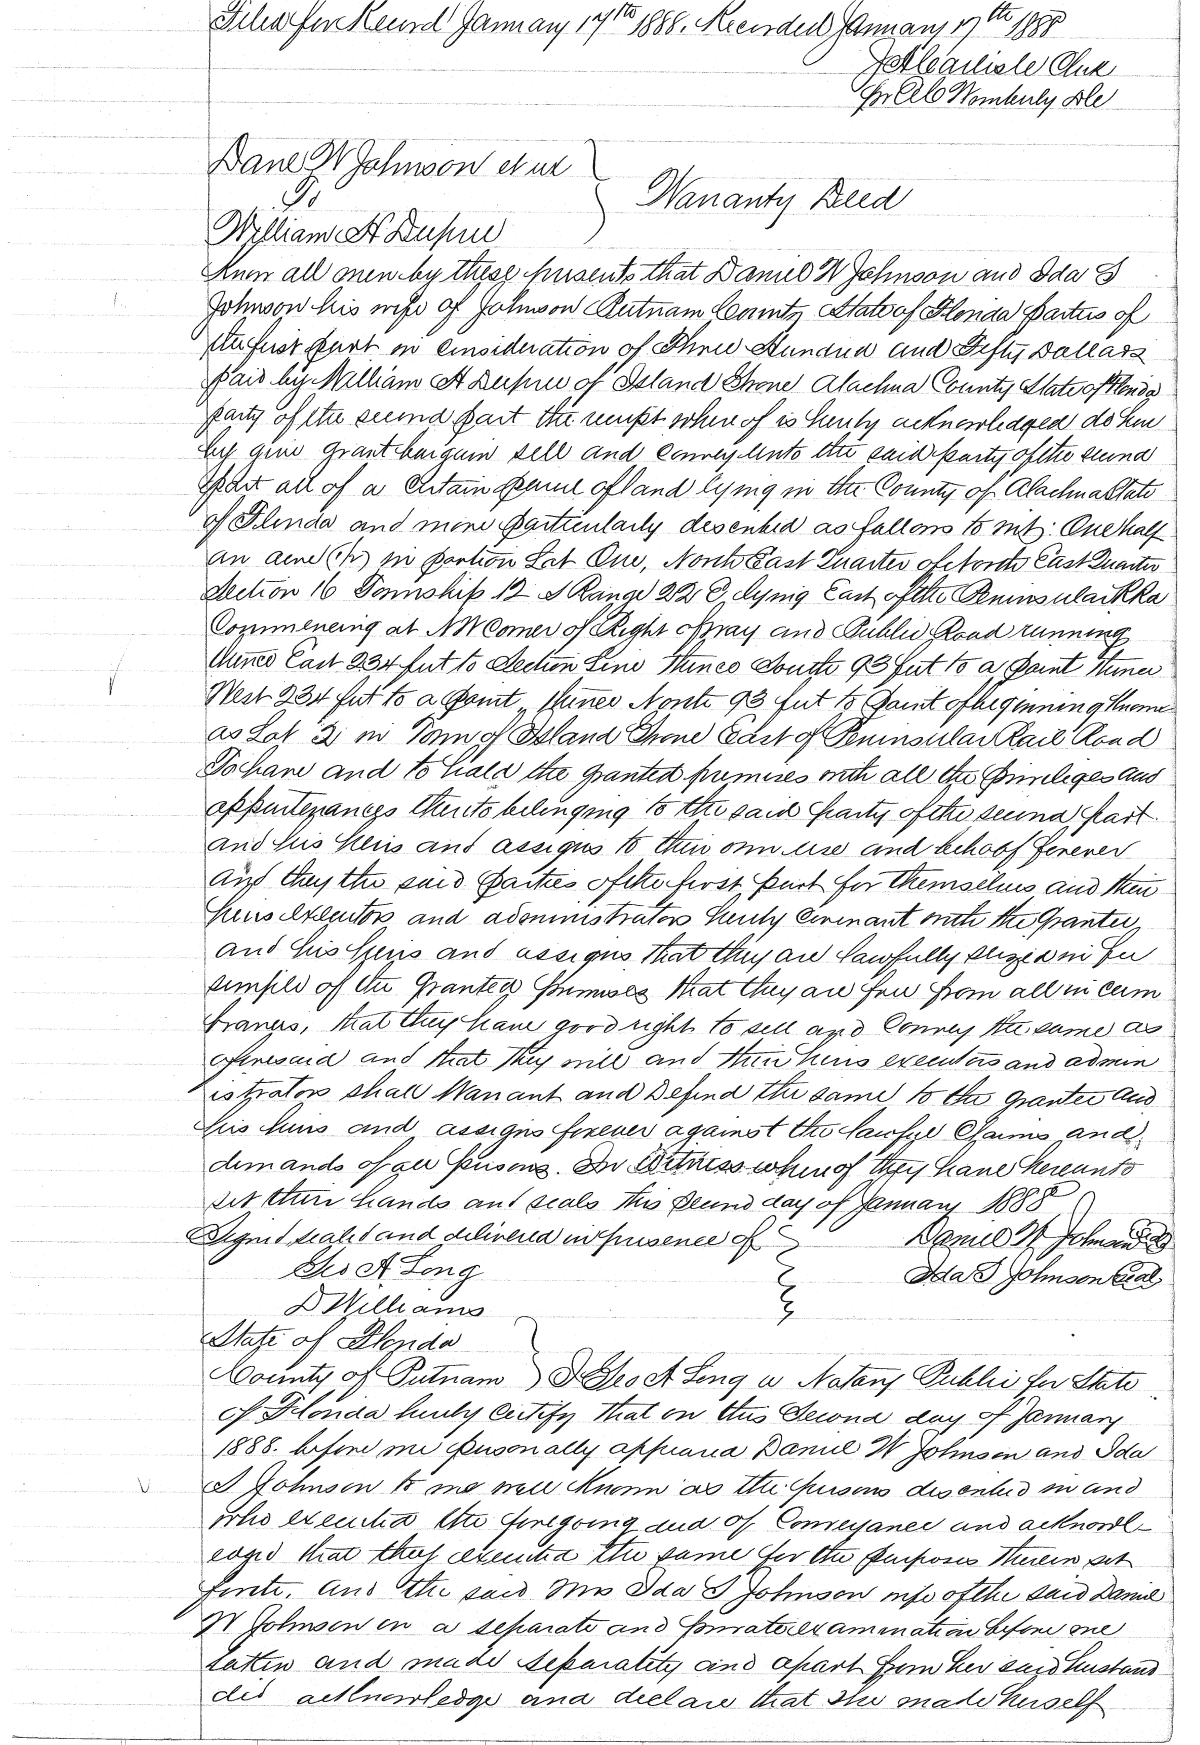 Filed for Record January 17th 1888. Recorded January 17th 1888
J A Carlisle Clerk
Dane W Johnson et ux
To
Warranty Deed
William H Dupree
Know all men by these presents that Daniel W Johnson and Ida S
Johnson his wife of Johnson Putnam County State of Florida parties of
the first part in consideration of Three Hundred and Fifty Dollars
paid by William H Dupree of Island Grove Alachua County State of Florida
party of the second part the receipt where of is hereby acknowledged do here
by give grant bargain sell and convey unto the said party of the second
part all of a certain parcel of land lying in the County of Alachua State
of Florida and more particularly described as follows to wit: One half
an acre (1/2) in portion Lot One, North East Quarter of North East Quarter
Section 16 Township 12 S Range 22 E, lying East of the Peninsular RRd
Commencing at NW Corner of Right of way and Public Road running
thence East 234 feet to Section Line thence South 93 feet to a point thence
West 234 feet to a point, thence North 93 feet to point of beginning Known
as Lot 2 in Town of Island Grove East of Peninsular Rail Road
To have and to hold the granted premises with all the privileges and
appurtenances thereto belonging to the said party of the second part
and his heirs and assigns to their own use and behoof forever
and they the said parties of the first part for themselves and their
heirs executors and administrators hereby covenant with the Grantee,
and his heirs and assigns that they are lawfully seized in fee
simple of the Granted premises that they are free from all in cum
brances, that they have good right to sell and Convey the same as
aforesaid and that they will and their heirs executors and admin
istrators shall Warrant and Defend the same to the grantee and
his heirs and assigns forever against the lawful claims and
demands of all persons. In Witness whereof they have hereunto
set their hands and seals this second day of January 1888
Signed sealed and delivered in presence of Daniel W Johnson Seal
Geo A Long Ida S Johnson Seal
D Williams
State of Florida
County of Putnam I Geo A Long a Notary Public for State
of Florida hereby certify that on this Second day of January
1888. before me personally appeared Daniel W Johnson and Ida
S Johnson to me well known as the persons described in and
who executed the foregoing deed of Conveyance and acknowl-
edged that they executed the same for the purposes therein set
forth. And the said Mrs Ida S Johnson wife of the said Daniel
W Johnson on a separate and private examination before me
taken and made separately and apart from her said husband
did acknowledge and declare that she made herself